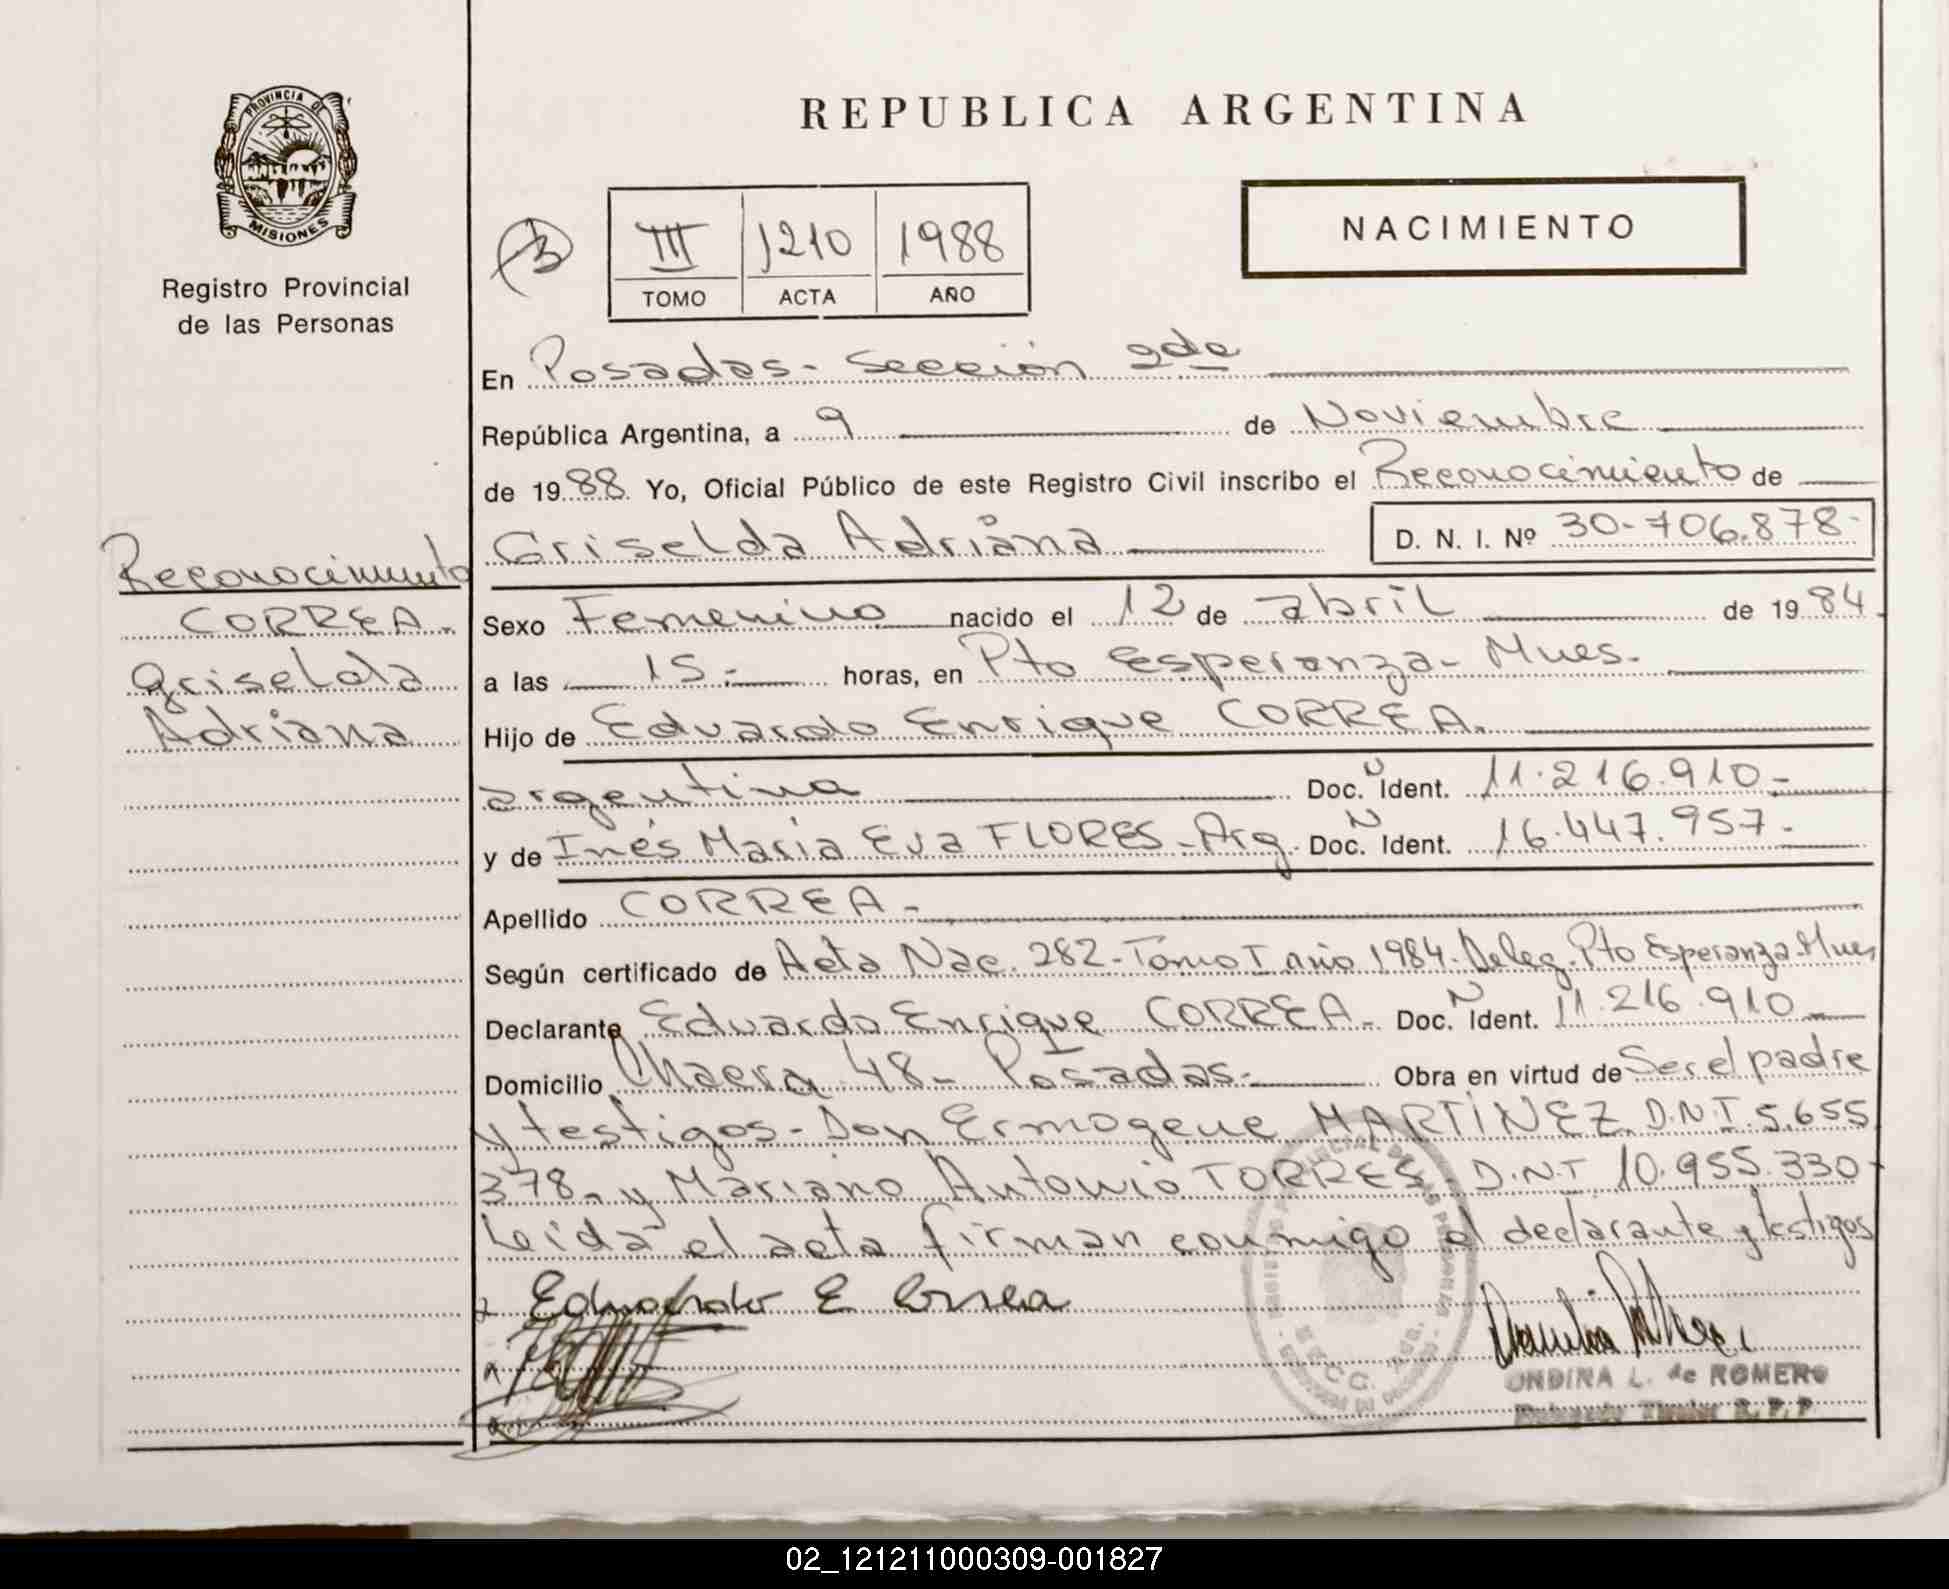 PROVINCIA DE
MISIONES
Registro Provincial
de las Personas
REPUBLICA ARGENTINA
NACIMIENTO
III 1210 1988
TOMO ACTA AÑO
En Posadas - Sección 2da
República Argentina, a 9 de Noviembre
de 1988 Yo, Oficial Público de este Registro Civil inscribo el Reconocimiento de
Griselda Adriana D. N. I. Nº 30-706.878-
Reconocimiento
CORREA -
Griselda
Adriana
Sexo Femenino nacido el 12 de abril de 1984
a las 15 - horas, en Pto Esperanza - Mnes.
Hijo de Eduardo Enrique CORREA.
argentina Doc. N Ident. 11.216.910 -
y de Inés María Eva FLORES - Arg. Doc. N Ident. 16.447.957 -
Apellido CORREA -
Según certificado de Acta Nac. 282 - Tomo I año 1984. Deleg. Pto Esperanza - Mnes
Declarante Eduardo Enrique CORREA - Doc. N Ident. 11.216.910
Domicilio Chacra 48 - Posadas - Obra en virtud de Ser el padre
y testigos - Don Ermogene MARTÍNEZ. D.N.I. 5.655
378 - y Mariano Antonio TORRES. D.N.I. 10.955.330 -
Leida el acta firman conmigo el declarante y testigos
E Correa
ONDINA L. de ROMERO
R. P. P.
02_121211000309-001827